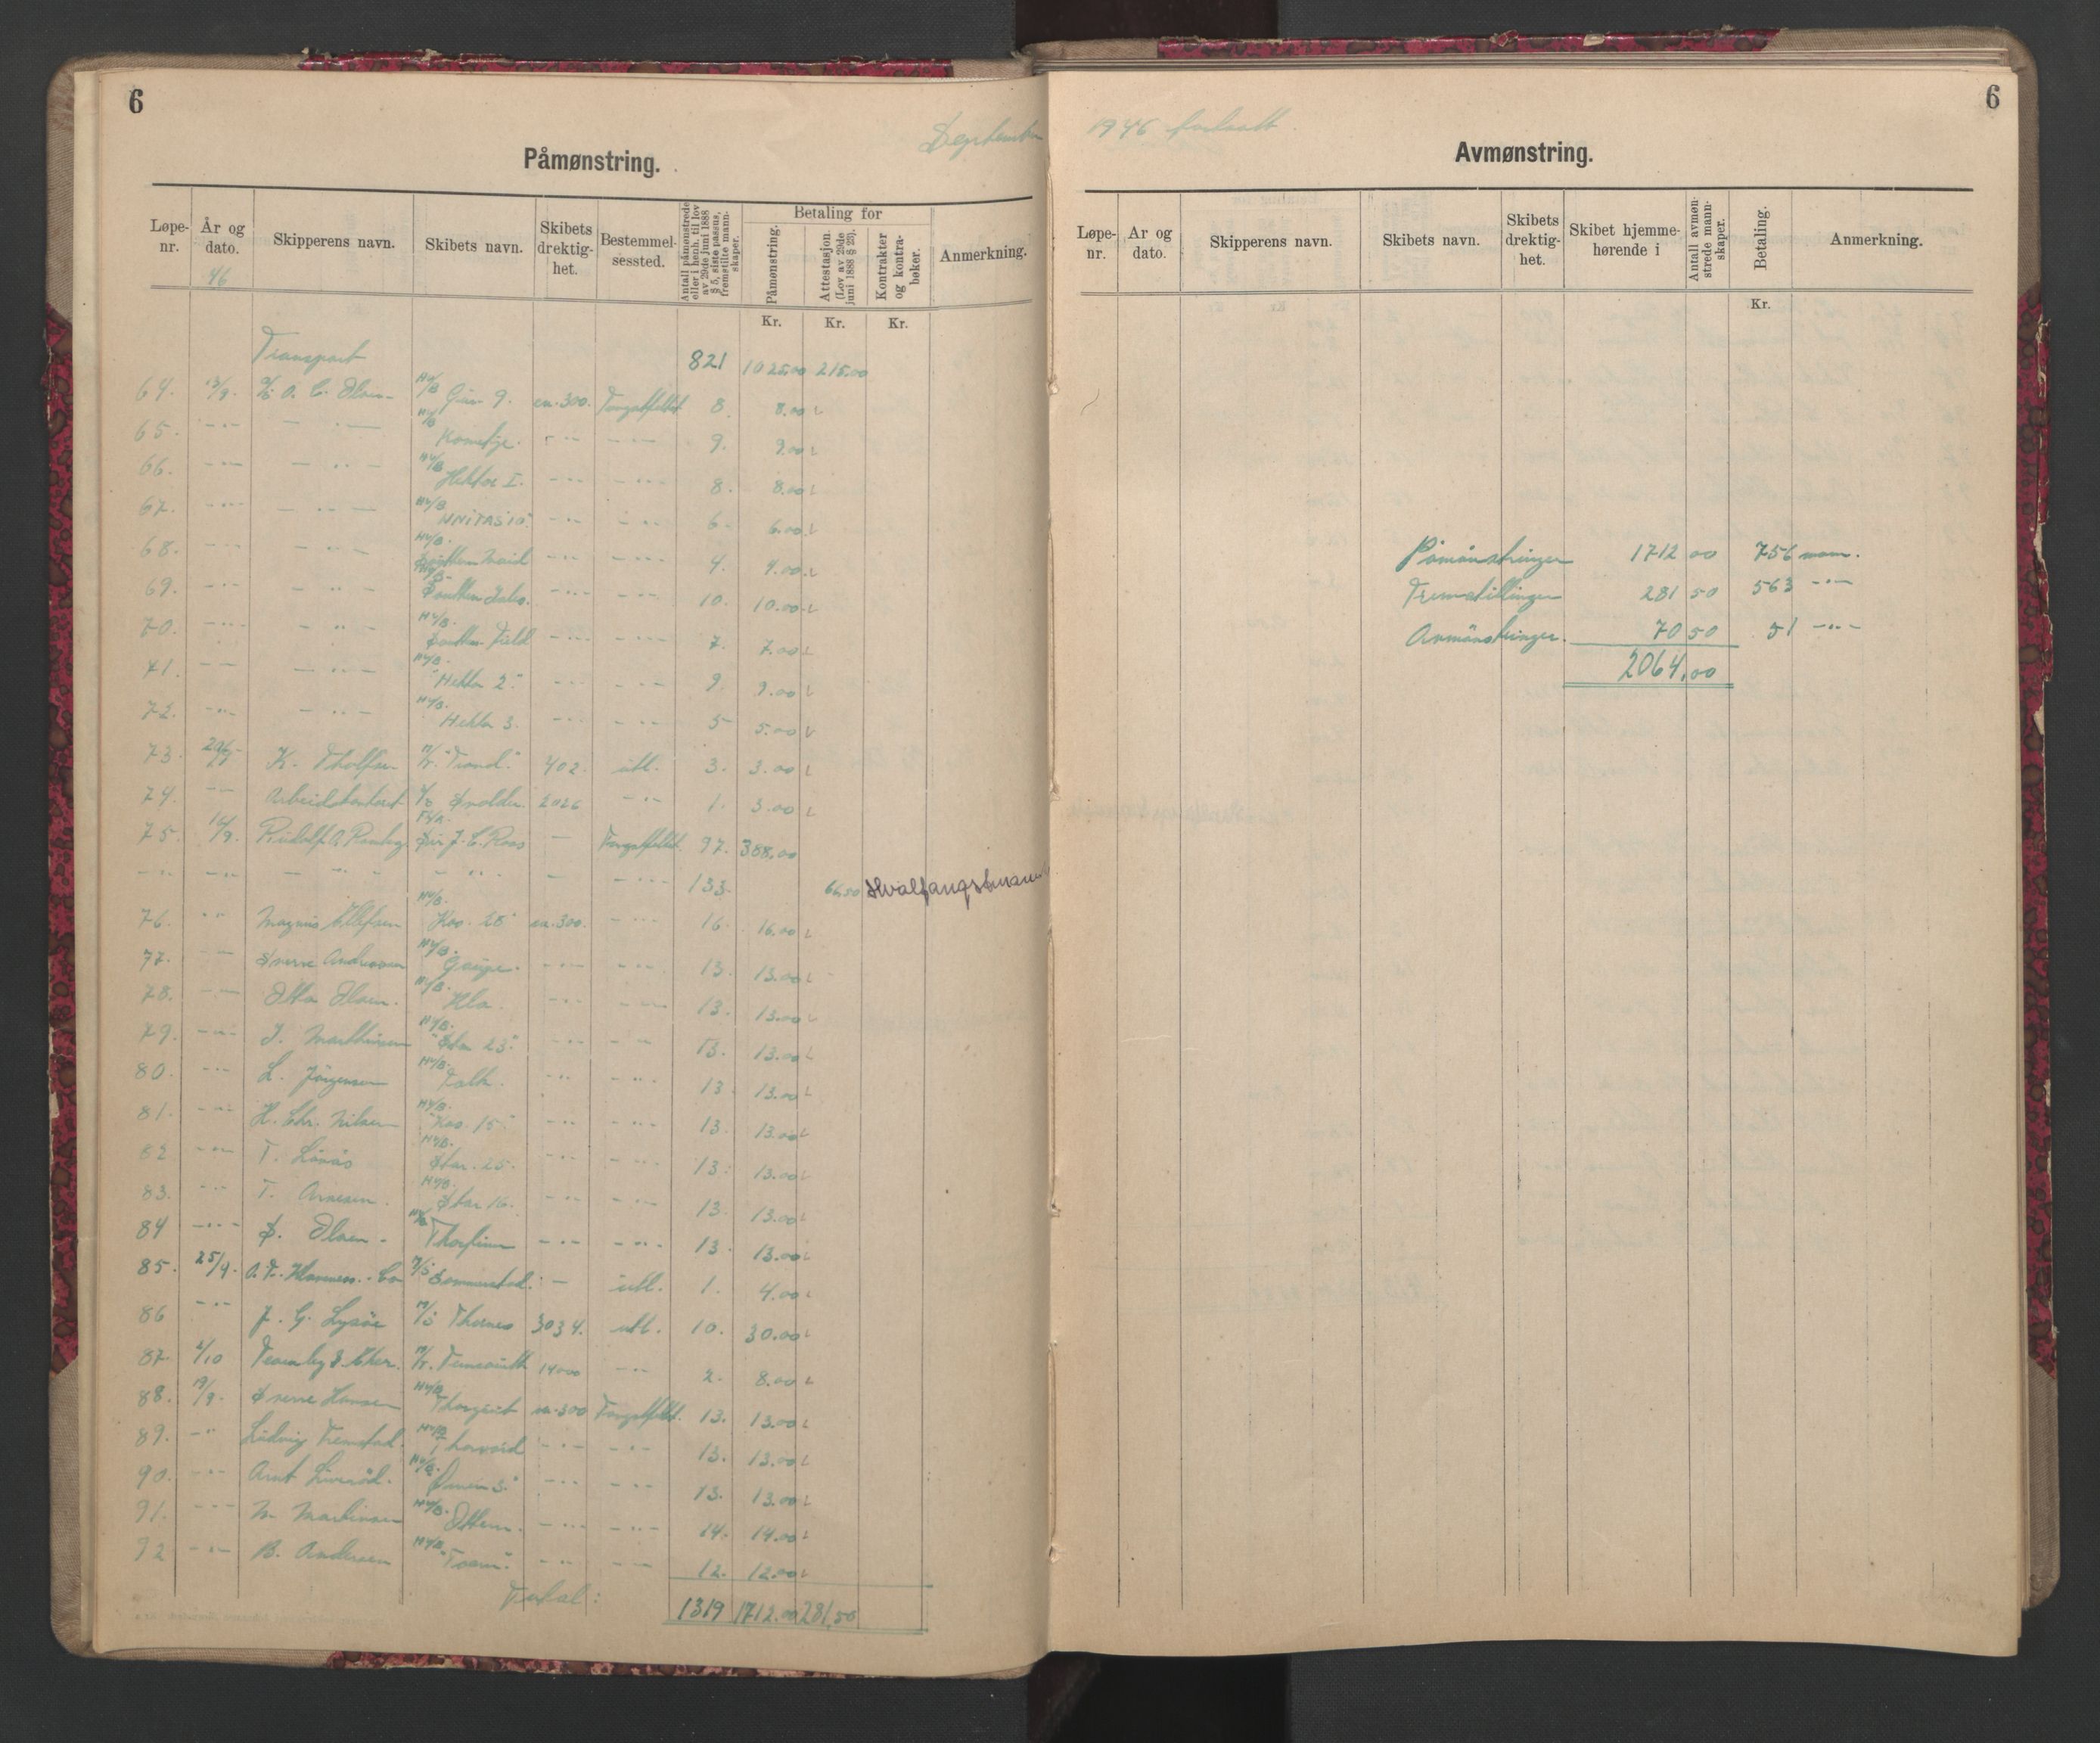 6
September
Påmønstring.
Løpe-nr. År og dato. Skipperens navn. Skibets navn. Skibets drektig-het. Bestemmel-sessted. Antall påmønstrede eller i henh. til lov av 29de juni 1888 § 5, siste passus, fremstilte mann-skaper. Betaling for Påmønstring. Attestasjon (Lov av 29de juni 1888 § 25). Kontrakter og kontra-bøker. Anmerkning.
46
Kr. Kr. Kr.
Transport 821 1025.00 215.00
64. 13/9. O. C. Olsen Hv/B 9. ca. 300. Fangstfeltet 8. 8.00
65. -"- -"- Hv/B -"- -"- 9. 9.00
66. -"- -"- Hv/B Hektor I. -"- -"- 8. 8.00
67. -"- -"- Hv/B UNITAS 10" -"- -"- 6. 6.00
68. -"- -"- Hv/B. Southern Maid -"- -"- 4. 4.00
69. -"- -"- Southern -"- -"- 10. 10.00
70. -"- -"- Hv/B. Southern Field -"- -"- 7. 7.00
71. -"- -"- Hv/B. "Hektor 2." -"- -"- 9. 9.00
72. -"- -"- Hv/B. Hektor 3. -"- -"- 5 5.00
73. K. Tholfsen "Trond." 402. utl. 3. 3.00
74. -"- Arbeidskontoret 2026 -"- 1. 3.00
75. 16/9. Rudolf A. Ramberg Fl/k. Sir J. C. Ross — Fangstfeltet 97. 388.00
-"- -"- -"- -"- — -"- 133. 66.50 Hvalfangst
76. -"- Magnus Ellefsen Hv/B. Kos. 28 ca. 300. -"- 16. 16.00
77. -"- Sverre Andersen Hv/B. Gaupe. -"- -"- 13. 13.00
78. -"- Otto Olsen. Hv/B. Klo. -"- -"- 13. 13.00
79. -"- J. Marthinsen Hv/B. "Star 23." -"- -"- 13. 13.00
80. -"- L. Jörgensen Hv/B. Falk. -"- -"- 13. 13.00
81. -"- H. Chr. Nilsen Hv/B. "Kos. 15" -"- -"- 13. 13.00
82 -"- T. Hv/B. Star. 25. -"- -"- 13. 13.00
83. -"- T. Arnesen. Hv/B. Star 16. -"- -"- 13. 13.00
84 -"- S. Olsen. Thorfinn -"- -"- 13. 13.00
85. 25/9. A. F. Klaveness. Co M/S Sommerstad. — utl. 1. 4.00
86 -"- J. G. Lysöe M/S Thornes 3034. utl. 10. 30.00
87. 2/10 14000 -"- 2. 8.00
88. 19/9. Sverre Hansen Hv/B Thorgaut ca. 300 Fangstfeltet. 13. 13.00
89. -"- Ludvig Fremstad. Hv/B Thorvard -"- -"- 13. 13.00
90. -"- Arnt Hv/B. Ørnen 3." -"- -"- 13. 13.00
91. -"- M. Martinsen Hv/B. Ottern. -"- -"- 14. 14.00
92 -"- B. Andersen Hv/B. -"- -"- 12. 12.00
Total: 1319 1712.00 281,50
6
1946 fortsatt
Avmønstring.
Løpe-nr. Ar og dato. Skipperens navn. Skibets navn. Skibets drektig-het. Skibet hjemme-hørende i Antall avmøn-strede mann-skaper. Betaling. Anmerkning.
Kr.
Påmönstringer 1712 00 756 mann.
Fremstillinger 281 50 563 -"-
Avmönstringer. 70 50 51 -"-
2064.00